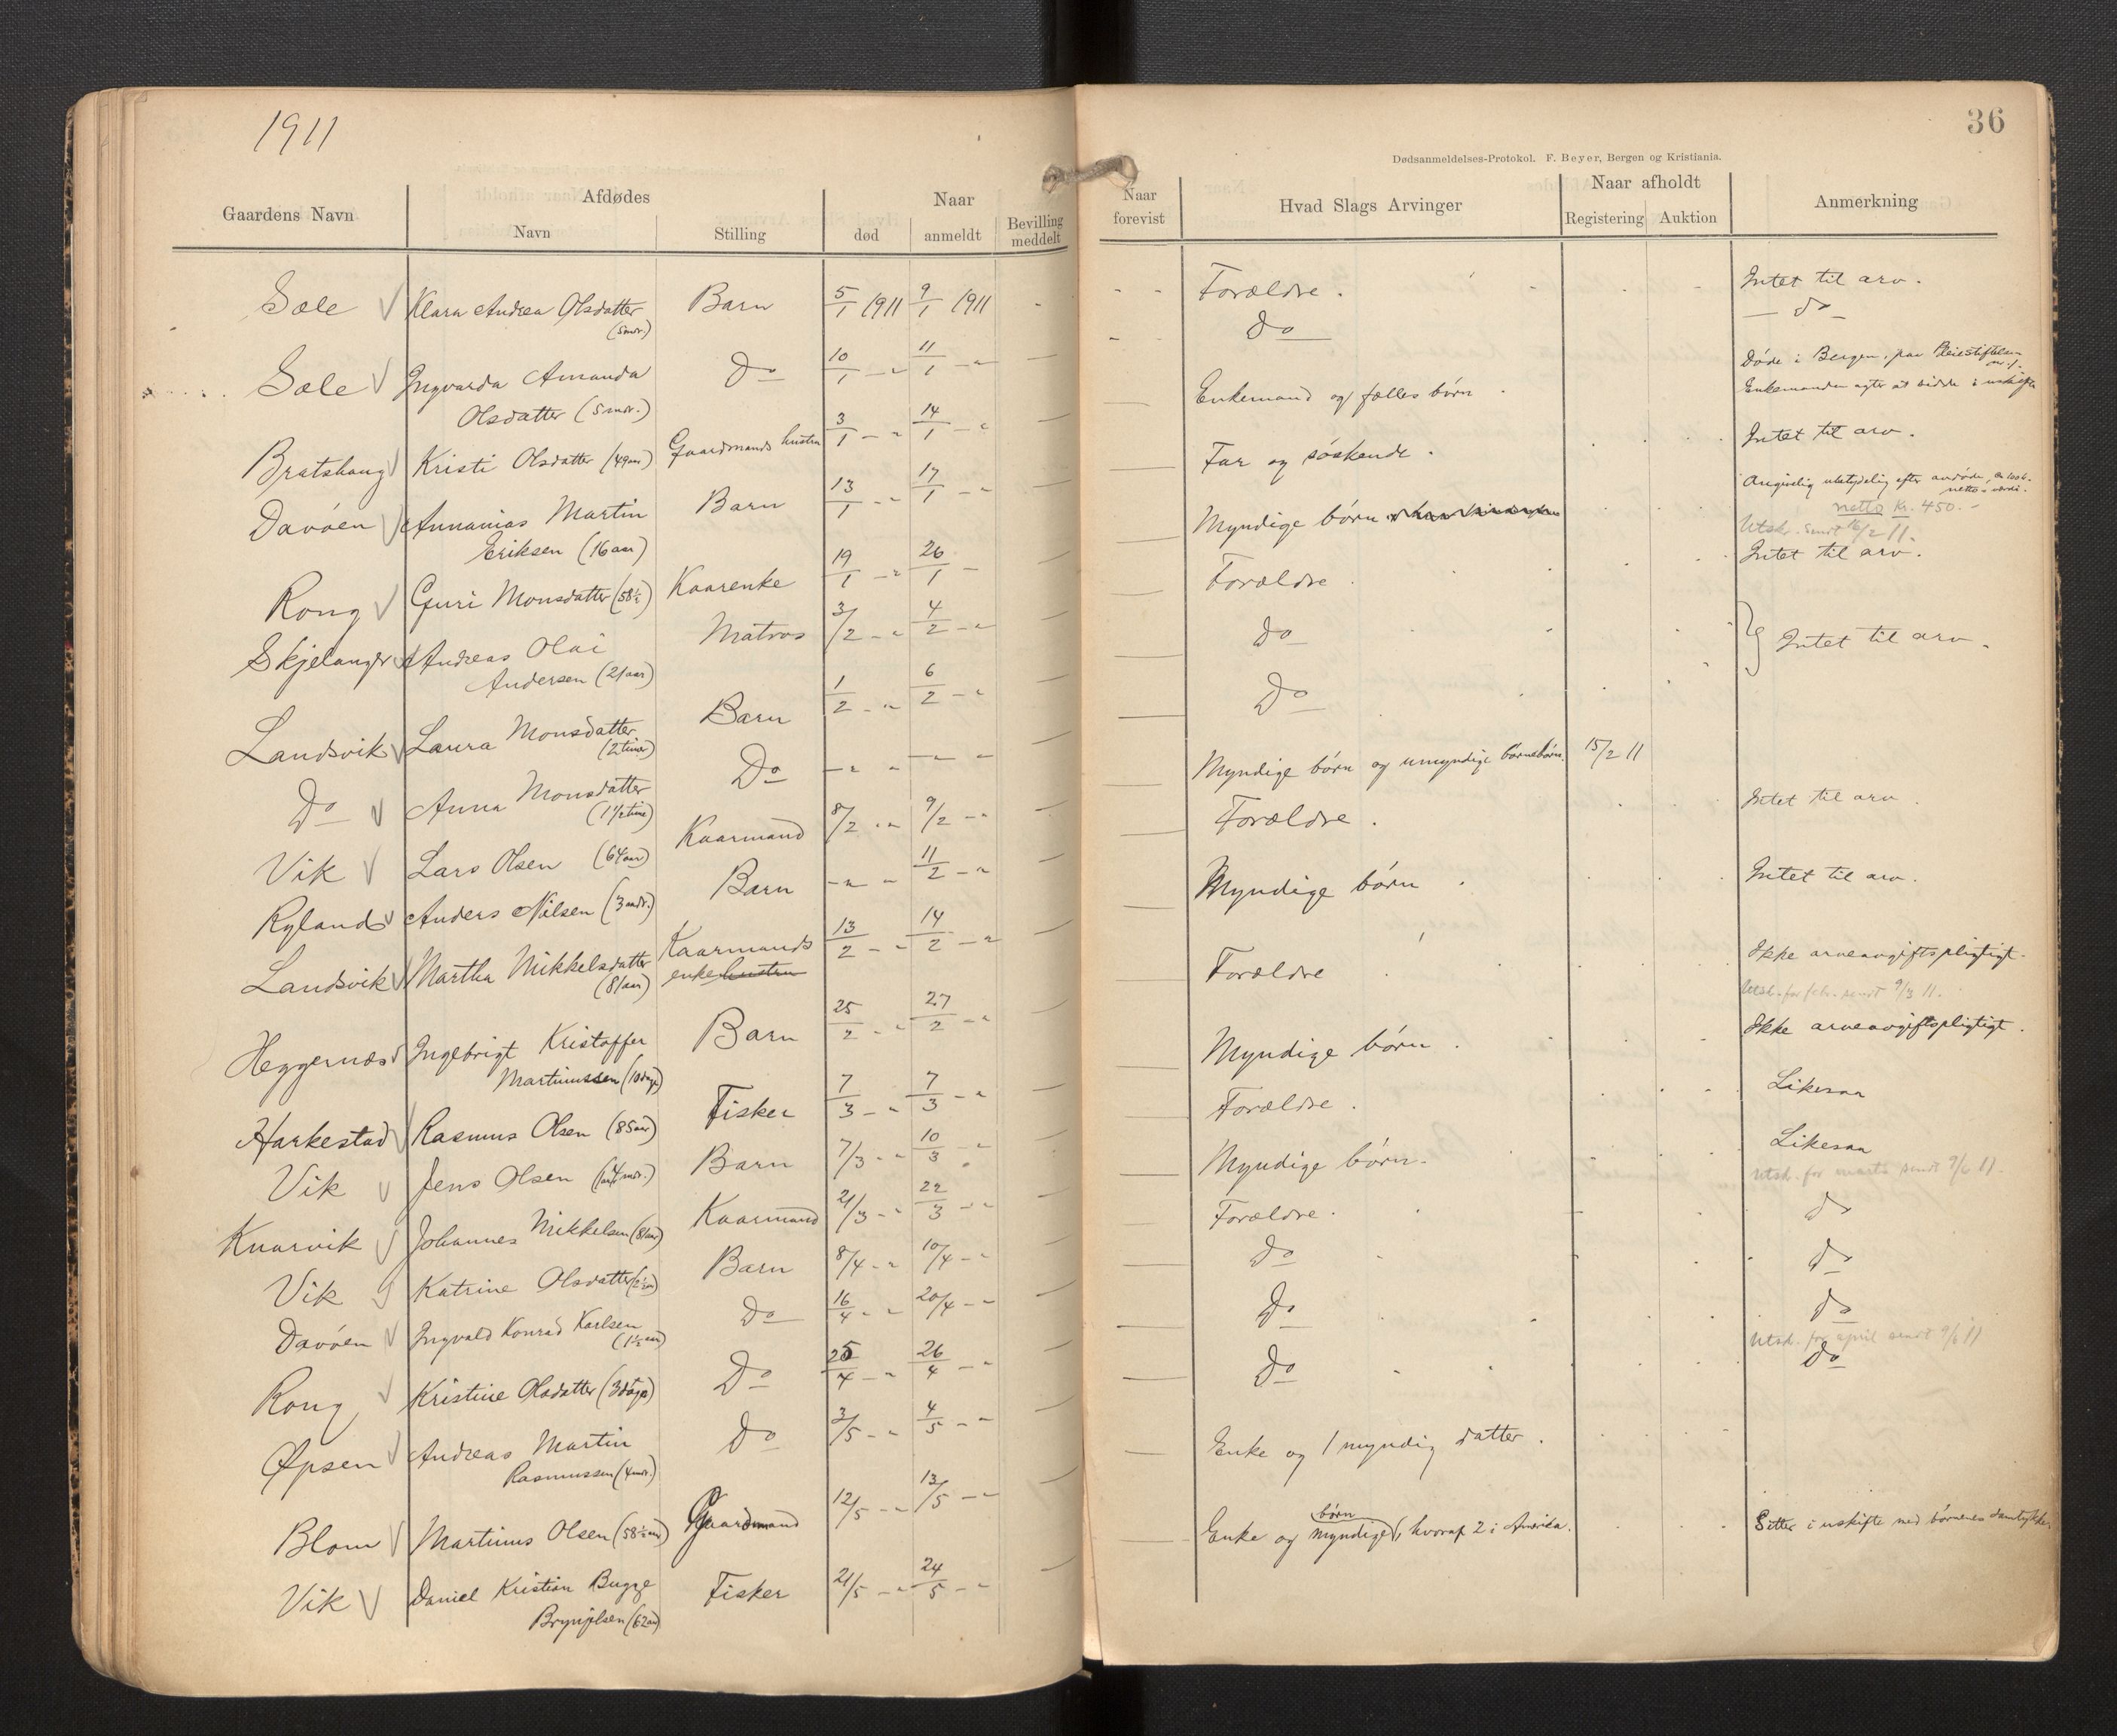 1911
36
Dødsanmeldelses-Protokol. F. Beyer, Bergen og Kristiania.
Gaardens Navn
Afdødes
Navn
Stilling
Naar
død
anmeldt
Bevilling meddelt
Naar forevist
Hvad Slags Arvinger
Naar afholdt
Registering
Auktion
Anmerkning
Sæle V Klara Andrea Olsdatter Barn 5/1 1911 9/1 1911
(5 mdr.)
Sæle V Ingvarda Amanda Do 10/1 — " 11/1 — "
Olsdatter (5 mdr.)
Bratshaug V Kristi Olsdatter (49 aar) Gaardmands hustru 3/1 — " 14/1 — "
Davøen V Annanias Martin Barn 13/1 - " 17/1 - "
Eriksen (16 aar)
Rong V Guri Monsdatter (58½) Kaarenke 19/1 - " 26/1 -
Skjelanger V Andreas Olai Matros 3/2 - " 4/2 - "
Andersen (21 aar)
Landsvik V Laura Monsdatter Barn 1/2 - " 6/2 - "
(2 timer)
Do V Anna Monsdatter Do - " - — " "
(1½ time)
Vik V Lars Olsen (64 aar) Kaarmand 8/2 - " 9/2 - "
Ryland V Anders Nilsen (3 mdr.) Barn - " - 11/2 - "
Landsvik V Martha Mikkelsdatter Kaarmands 13/2 - " 14/2 - "
(81 aar) enke hustru
Heggernæs V Ingebrigt Kristoffer Barn 25/2 - " 27/2 - "
Martinussen (10 dage)
Harkestad V Rasmus Olsen (85 aar) Fisker 7/3 - " 7/3 - "
Vik V Jens Olsen Barn 7/3 - " 10/3 - "
Knarvik V Johannes Mikkelsen (81 aar) Kaarmand 21/3 - " 22/3 - "
Vik V Katrine Olsdatter Barn 8/4 - " 10/4 - "
Davøen V Ingvald Konrad Karlsen Do 16/4 - " 20/4 - "
(1½ aar)
Rong V Kristine Olsdatter (3 dage) Do 25/4 - " 26/4 - "
Øpsen V Andreas Martin Do 3/5 - " 4/5 - "
Rasmussen (4 mdr.)
Blom V Martinus Olsen (58½ aar) Gaardmand 12/5 - " 13/5 - "
Vik V Daniel Kristian Bugge Fisker 21/5 - " 24/5 - "
Brynjelsen (62 aar)
Forældre. Intet til arv.
Do — do —
Døde i Bergen, paa Pleiestiftelsen
Enkemand og fælles børn Enkemanden agter at sidde i uskifte
Far og søskende. Intet til arv.
Angivelig ubetydelig efter avdøde,
netto værdi.
Myndige børn netto Kr. 450.-
Utsk. sendt 16/2 11.
Forældre Intet til arv.
Do
Intet til arv.
Do
Myndige børn og umyndige børnebørn. 15/2 11
Forældre. Intet til arv.
Myndige børn. Intet til arv.
Forældre Ikke arveavgiftspligtigt.
Utsk. for feb. sendt 9/3 11.
Myndige børn. Ikke arveavgiftspligtigt.
Forældre. Likesaa
Myndige børn. Likesaa
Utsk. for marts sendt
Forældre. do
Do do
Do do
Utsk. for april sendt
Do do
Enke og 1 myndig datter.
børn
Enke og myndige, hvoraf 2 i Amerika. Sitter i uskifte med børnenes samtykke.